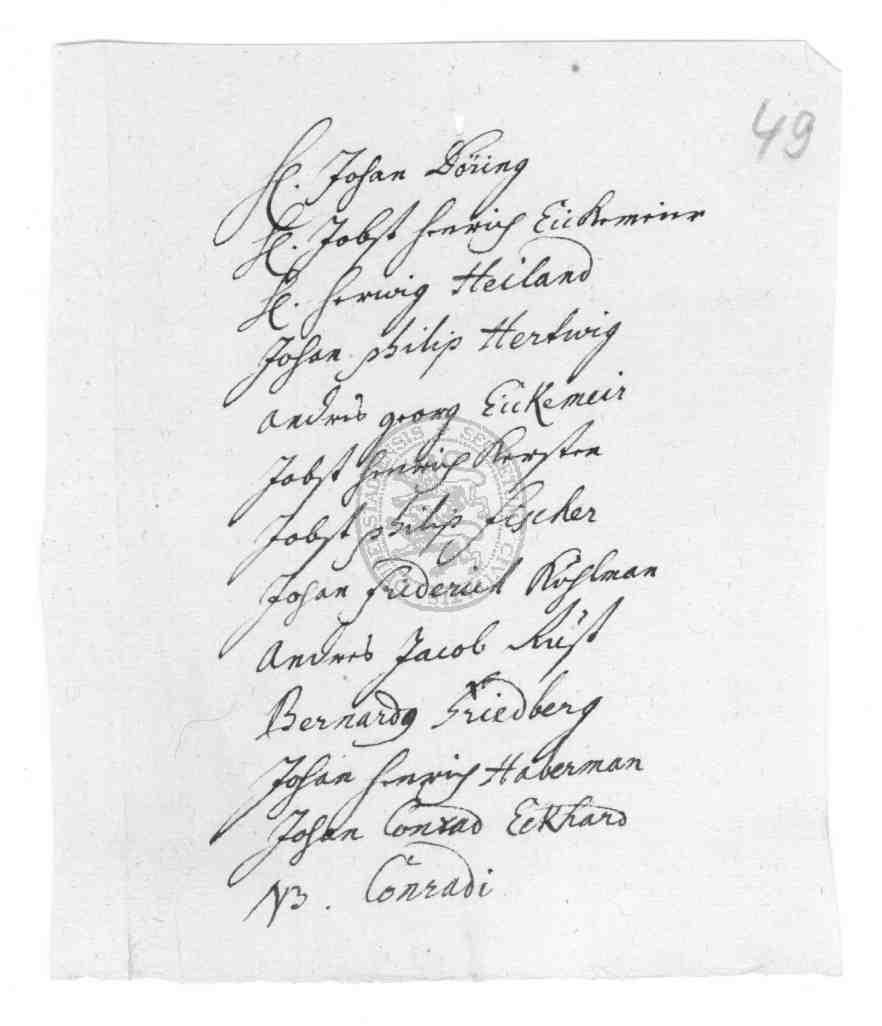 49
H. Johan Döring
H. Jobst Henrich Eickemeier
H. Herwig Heiland
Johan philip Hertwig
Andres georg Eickemeir
Jobst Henrich Kersten
Jobst philip Fischer
Johan Friderich Köhlman
Andres Jacob Rüst
Bernardg Friedberg
Johan Henrich Haberman
Johan Conrad Eckhard
NB. Conradi